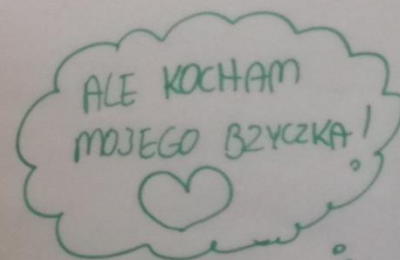 ALE KOCHAM
MOJEGO BZYCZKA!